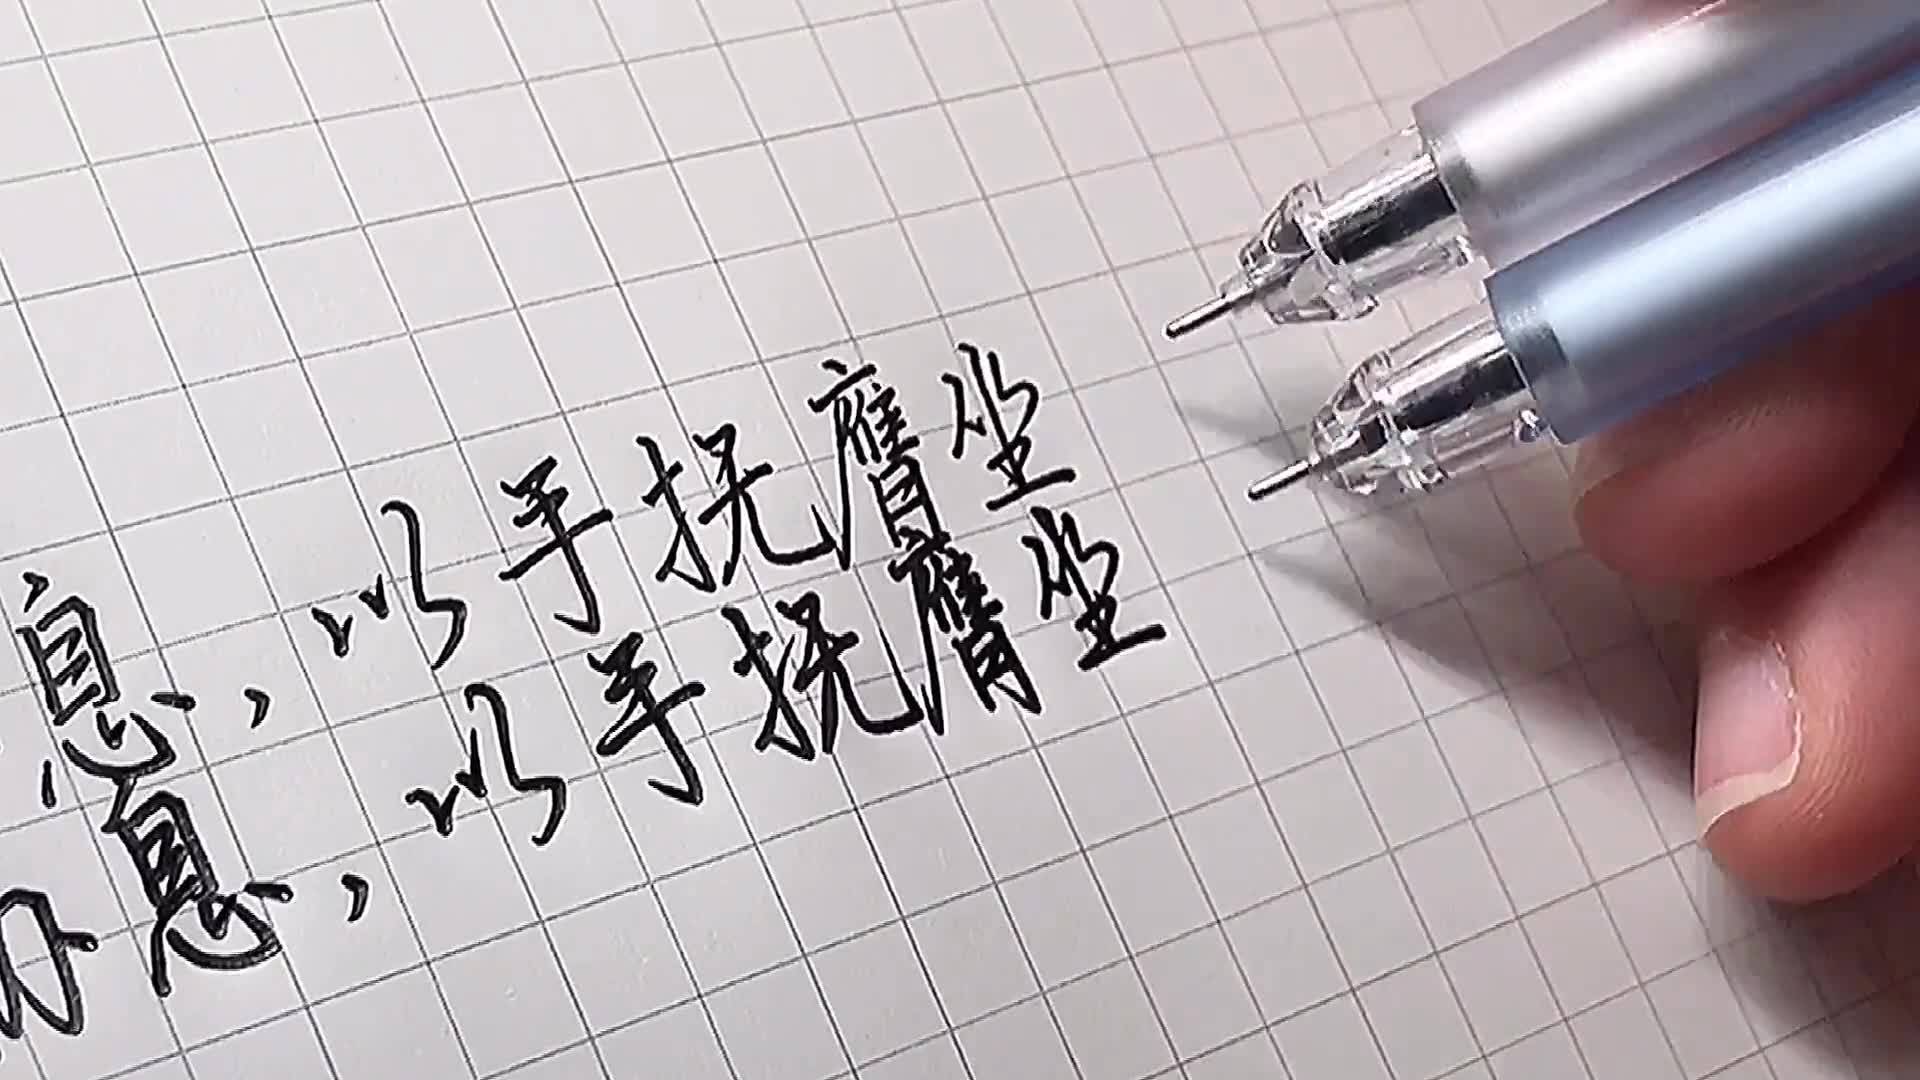 息，以手抚膺坐
息，以手抚膺坐